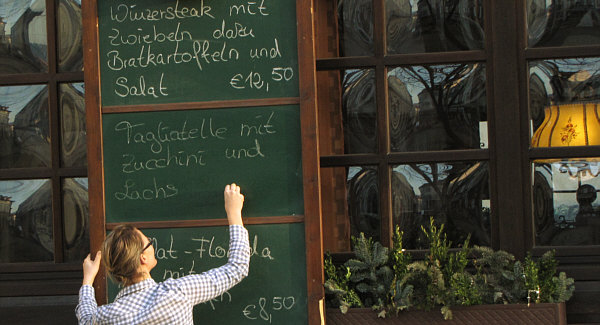 Winzersteak mit
Zwiebeln, dazu
Bratkartoffeln und
Salat €12,50
Tagliatelle mit
Zucchini und
Lachs
Florida
mit
und
€8,50